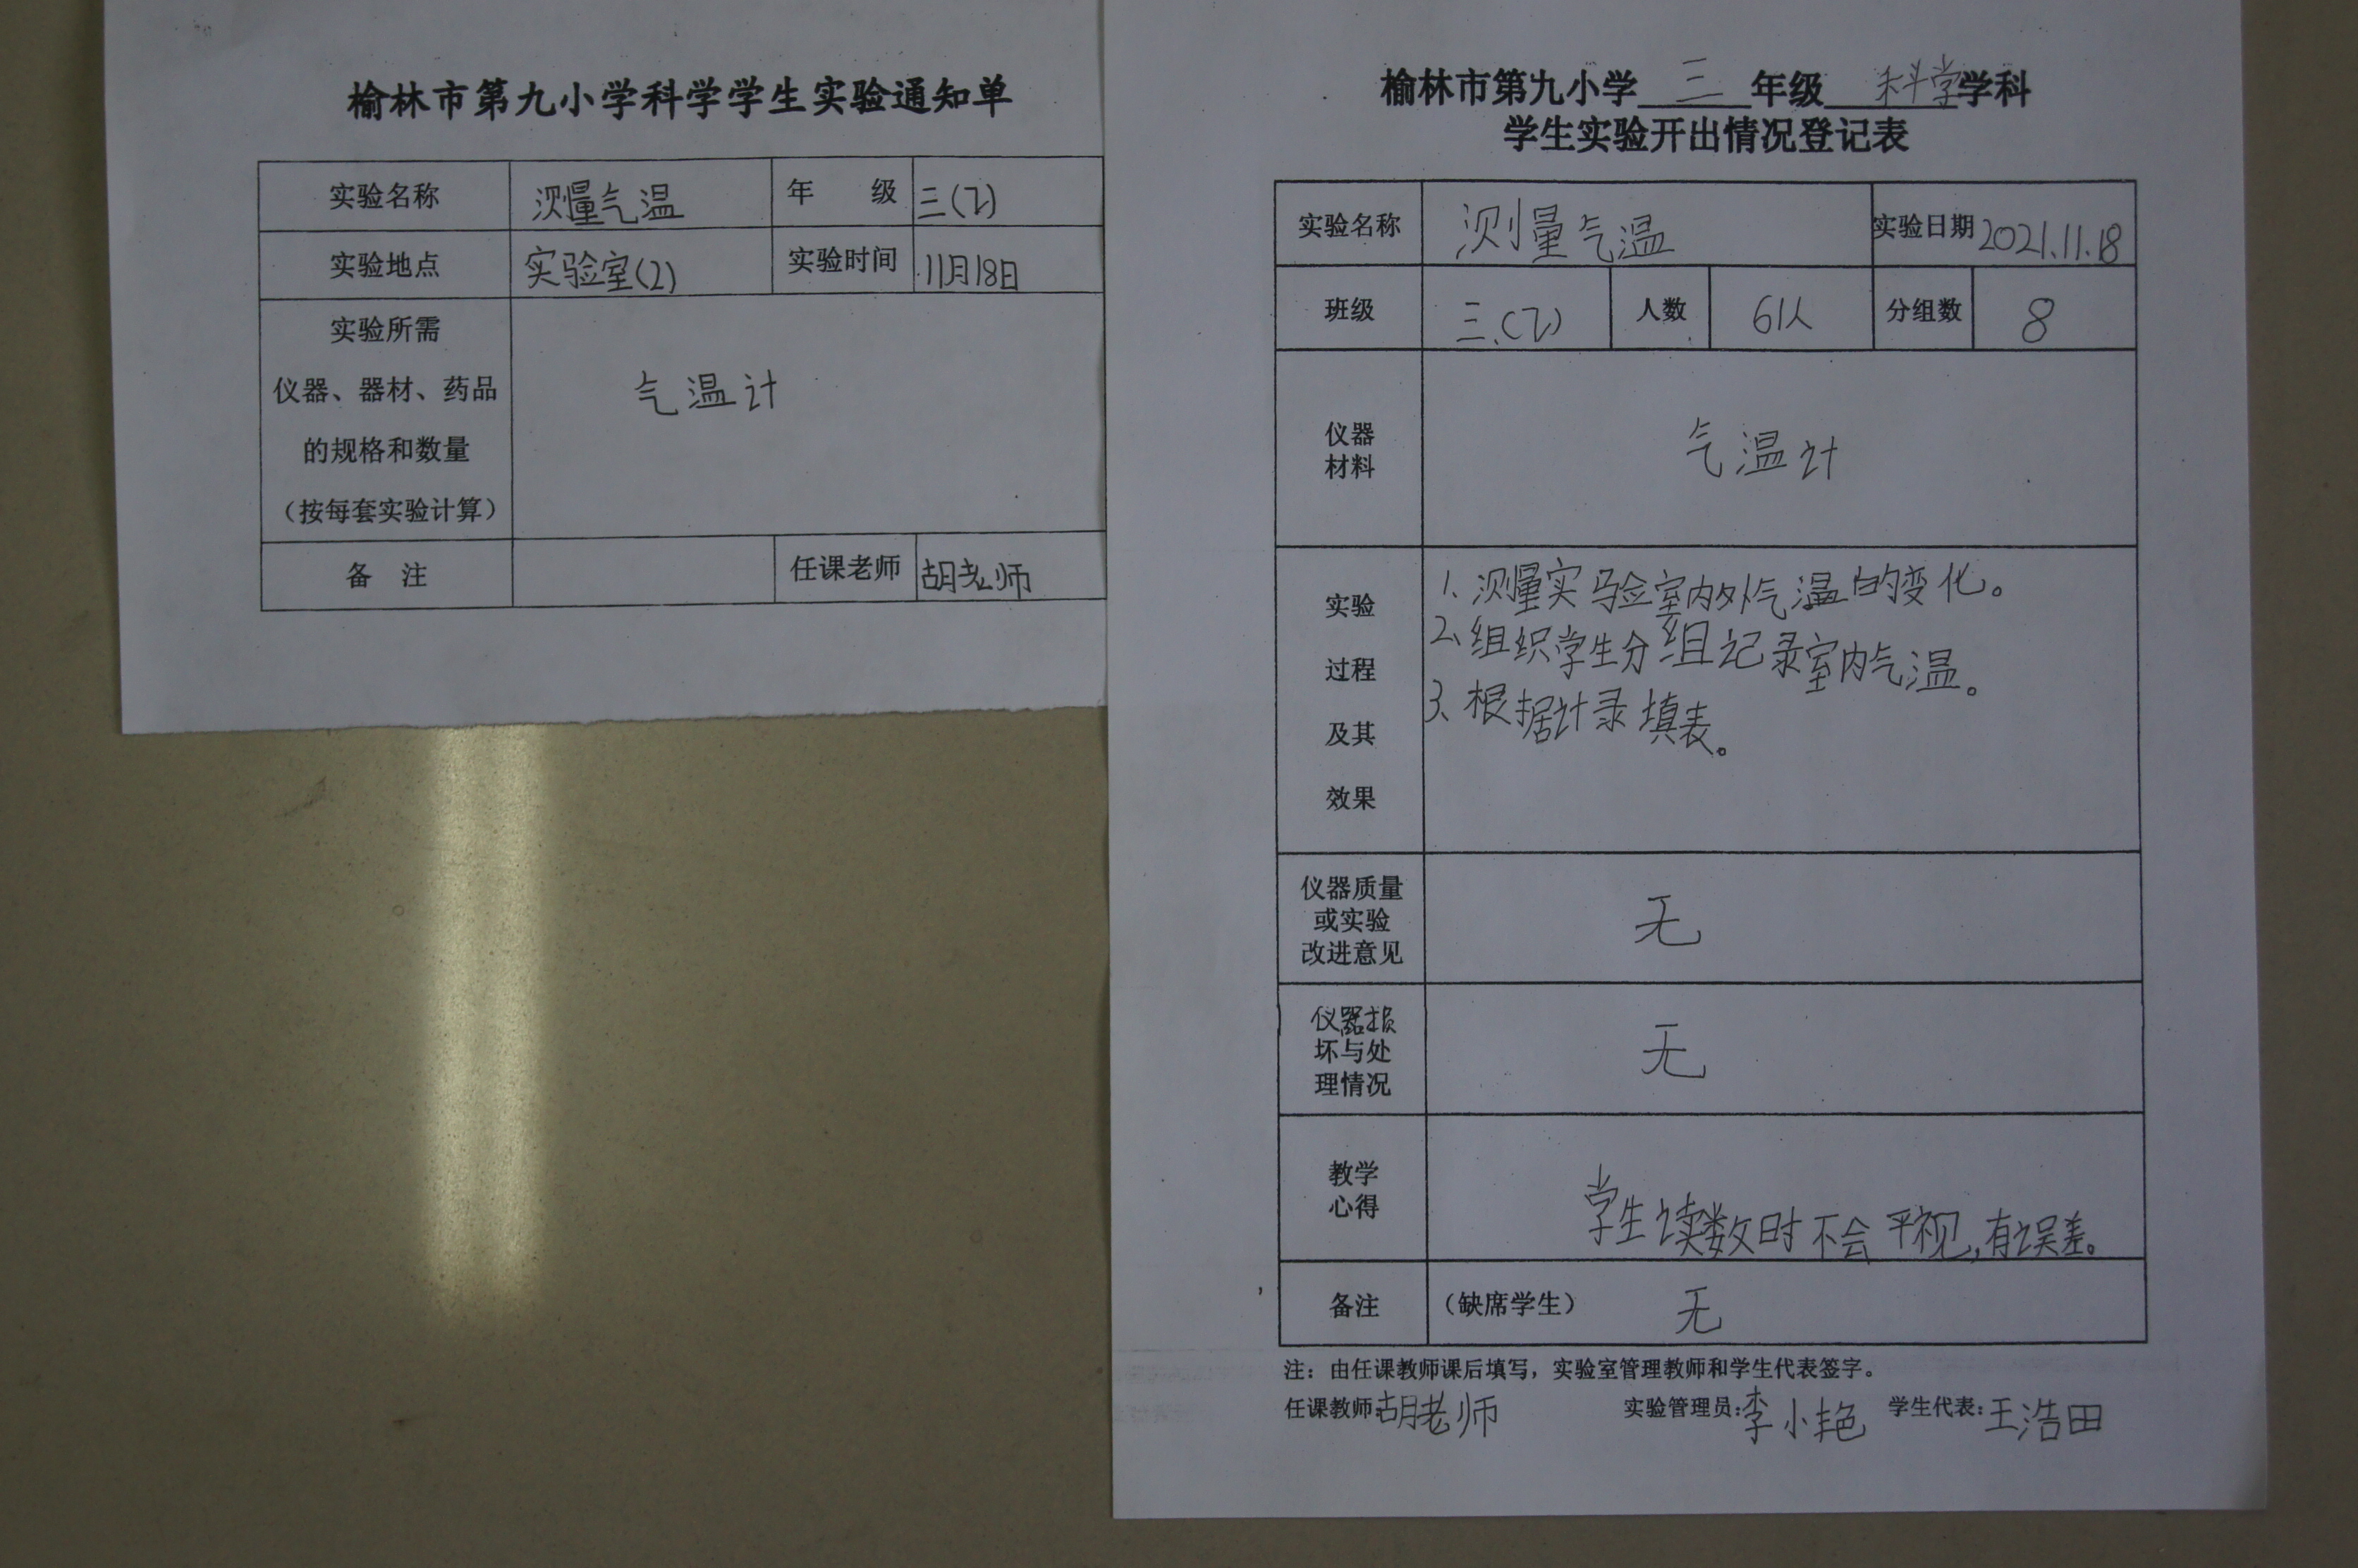 榆林市第九小学科学学生实验通知单
实验名称 测量气温 年 级 三(2)
实验地点 实验室(2) 实验时间 11月18日
实验所需
仪器、器材、药品
的规格和数量
（按每套实验计算）
气温计
备 注 任课老师 胡老师
榆林市第九小学 三 年级 科学 学科
学生实验开出情况登记表
实验名称 测量气温 实验日期 2021.11.18
班级 三.(2) 人数 61人 分组数 8
仪器
材料
气温计
实验
过程
及其
效果
1、测量实验室内外气温的变化。
2、组织学生分组记录室内气温。
3、根据计录填表。
仪器质量
或实验
改进意见
无
仪器损
坏与处
理情况
无
教学
心得
学生读数时不会平视,有误差。
备注 （缺席学生） 无
注：由任课教师课后填写，实验室管理教师和学生代表签字。
任课教师:胡老师 实验管理员:李小艳 学生代表:王浩田